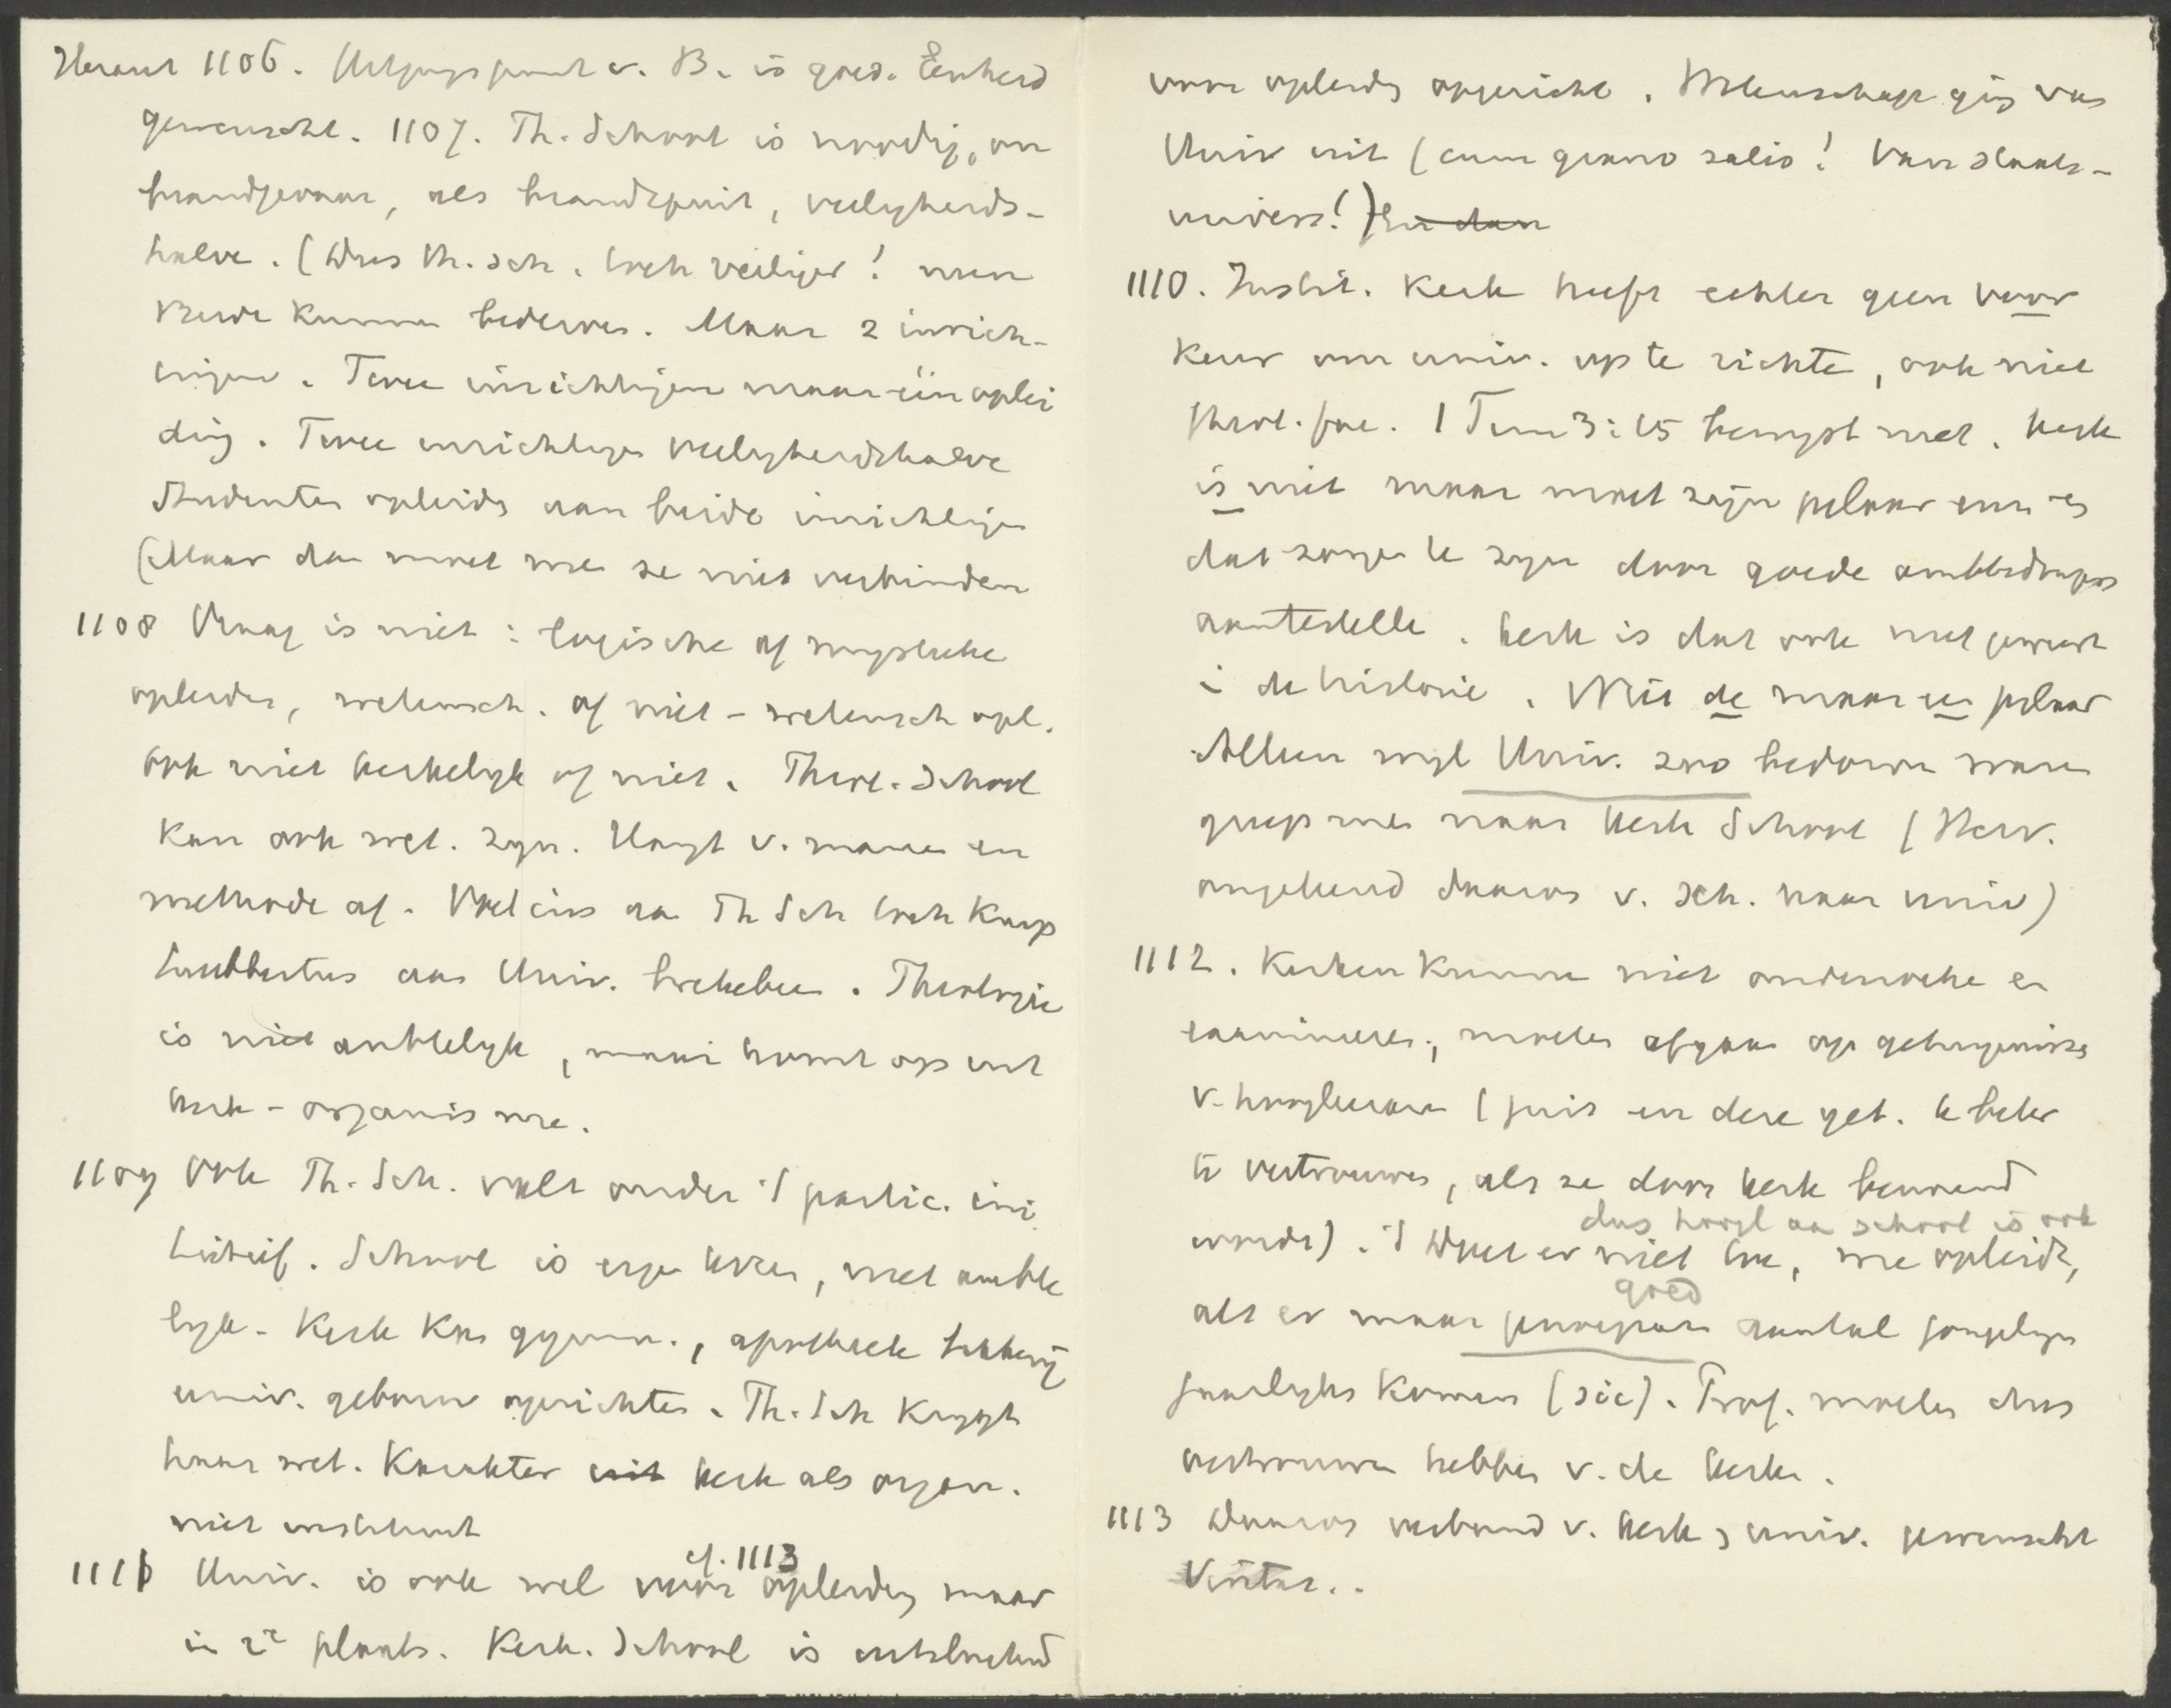 Heraut 1106. Uitgangspunt v. B. is goed. Eenheid
gewenscht. 1107. Th. School is noodig, om
brandgevaar, als brandspuit, veiligheids-
halve. (Dus th. sch. toch veiliger! men
Beide kunnen bederven. Maar 2 inrich-
tingen. Twee inrichtingen maar één oplei
ding. Twee inrichtingen veiligheidshalve
Studenten opleiding aan beide inrichtingen
(Maar dan moet men ze niet verbinden
1108 Vraag is niet: logische of mystieke
opleiding, wetensch. of niet-wetensch opl.
Ook niet kerkelijk of niet. Theol. School
kan ook wet. zijn. Hangt v. mannen en
methode af. Voetius aan Th Sch toch knap
Lubbertus aan Univ. Theologie
is niet ambtelijk, maar komt op uit
kerk-organisme.
1109 Ook Th. Sch. valt onder 't partic. ini
tiatief. School is eigen, niet ambte
lijk. Kerk kan gymn., apotheek
univ. gebouw oprichten. Th. Sch krijgt
haar wet. karakter uit kerk als organ.
niet instituut
cf. 1113
1111 Univ. is ook wel voor opleiding maar
in 2e plaats. Kerk. School is uitsluitend
voor opleiding opgericht. Wetenschap ging van
Univ uit (cum grano salis! Van staats-
univers!) En dan
1110. Instit. Kerk heeft echter geen voor
keur om univ. op te richten, ook niet
theol. fac. 1 Tim 3:15 bewijst niet. Kerk
is niet maar moet zijn pilaar enz en
dat zorgen te zijn door goede ambtsdragers
aantestellen. Kerk is dat ook niet geweest
in de historie. Niet de maar een pilaar
Alleen wijl Univ. zoo bedorven waren
greep men naar kerk School (Herv.
omgekeerd daarom v. sch. naar univ)
1112. Kerken kunnen niet onderzoeken en
examineeren; moeten afgaan op getuigenissen
v. hoogleeraren (juist en deze get. te beter
te vertrouwen, als ze door kerk benoemd
dus hoogl aan school is ook
worden). 't Doet er niet toe, wie opleidt,
goed
als er maar genoegzaam aantal jongelingen
jaarlijks komen (sic). Prof. moeten dus
vertrouwen hebben v. de kerken.
1113 Daarom verband v. kerk en univ. gewenscht